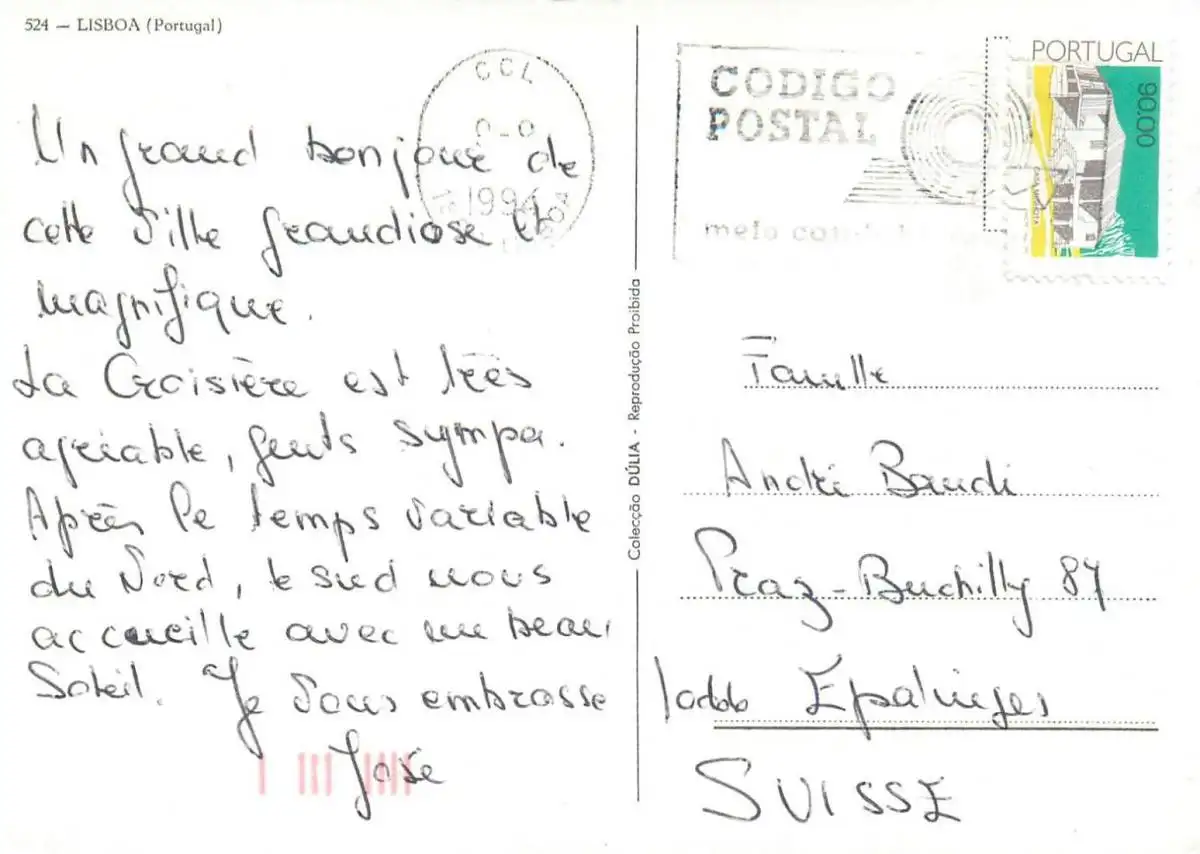 524 — LISBOA (Portugal)
Un grand bonjour de
cette Ville grandiose et
magnifique.
La Croisière est très
agréable, gents sympa.
Après le temps variable
du Nord, le sud nous
accueille avec un beau
Soleil. Je Vous embrasse
José
Colecção DÚLIA - Reprodução Proibida
CCL
1994
CODIGO
POSTAL
PORTUGAL
90.00
Famille
André Baudi
Praz-Buchilly 87
1066 Epalinges
SUISSE